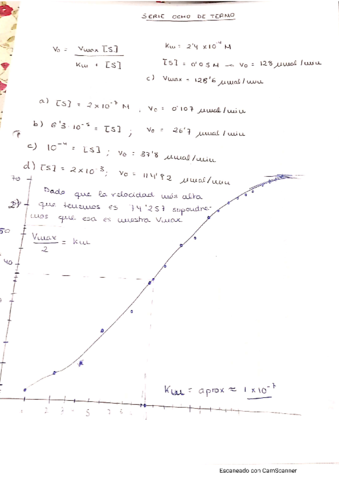 SERIE OCHO DE TERMO
V₀ = Vmax [S] / Km + [S]
Km = 2'4 x 10⁻⁴ M
[S] = 0'05 M → V₀ = 128 μmol/min
c) Vmax = 128'6 μmol/min
a) [S] = 2 x 10⁻⁷ M, V₀ = 0'107 μmol/min
b) 6'3·10⁻⁵ = [S]; V₀ = 26'7 μmol/min
c) 10⁻⁴ = [S]; V₀ = 37'8 μmol/min
d) [S] = 2 x 10⁻³; V₀ = 114'82 μmol/min
70
Dado que la velocidad más alta
2) que tenemos es 74'257 supondre-
mos que esa es nuestra Vmax
Vmax / 2 = Km
40
Km = aprox ≈ 1 x 10⁻⁷
Escaneado con CamScanner